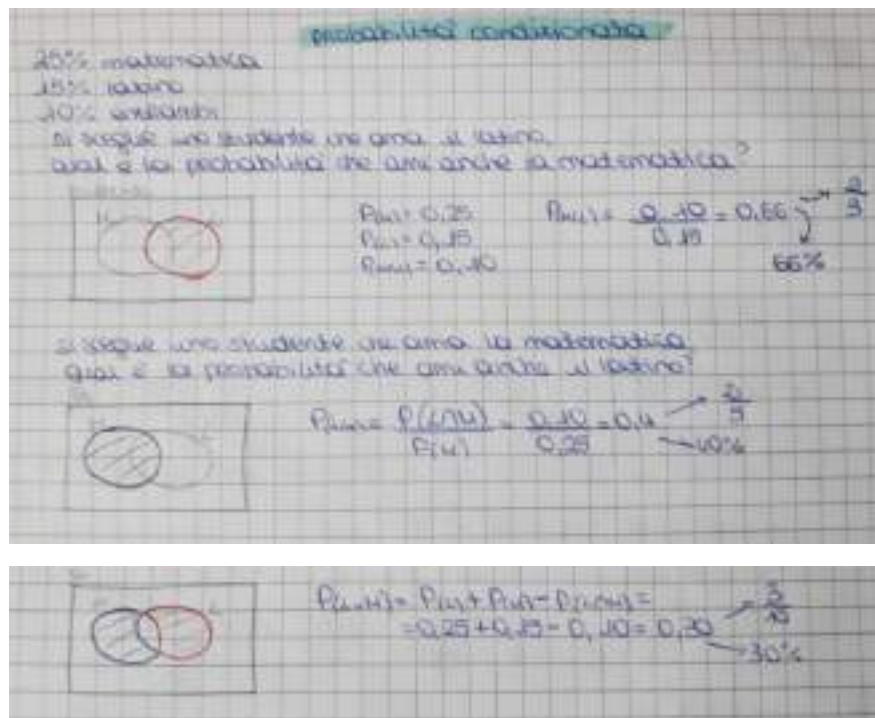 probabilità condizionata
25% matematica
15% latino
10% entrambi
si sceglie uno studente che ama il latino.
qual è la probabilità che ami anche la matematica?
P(M) = 0,25
P(L) = 0,15
= 0,10
= 0,10/0,15 = 0,66 → 2/3
66%
si sceglie uno studente che ama la matematica
qual è la probabilità che ami anche il latino?
= P(L∩M)/P(M) = 0,10/0,25 = 0,4 → 2/5
40%
= P(L) + P(M) - P(L∩M) =
= 0,25 + 0,15 - 0,10 = 0,30 → 3/10
30%